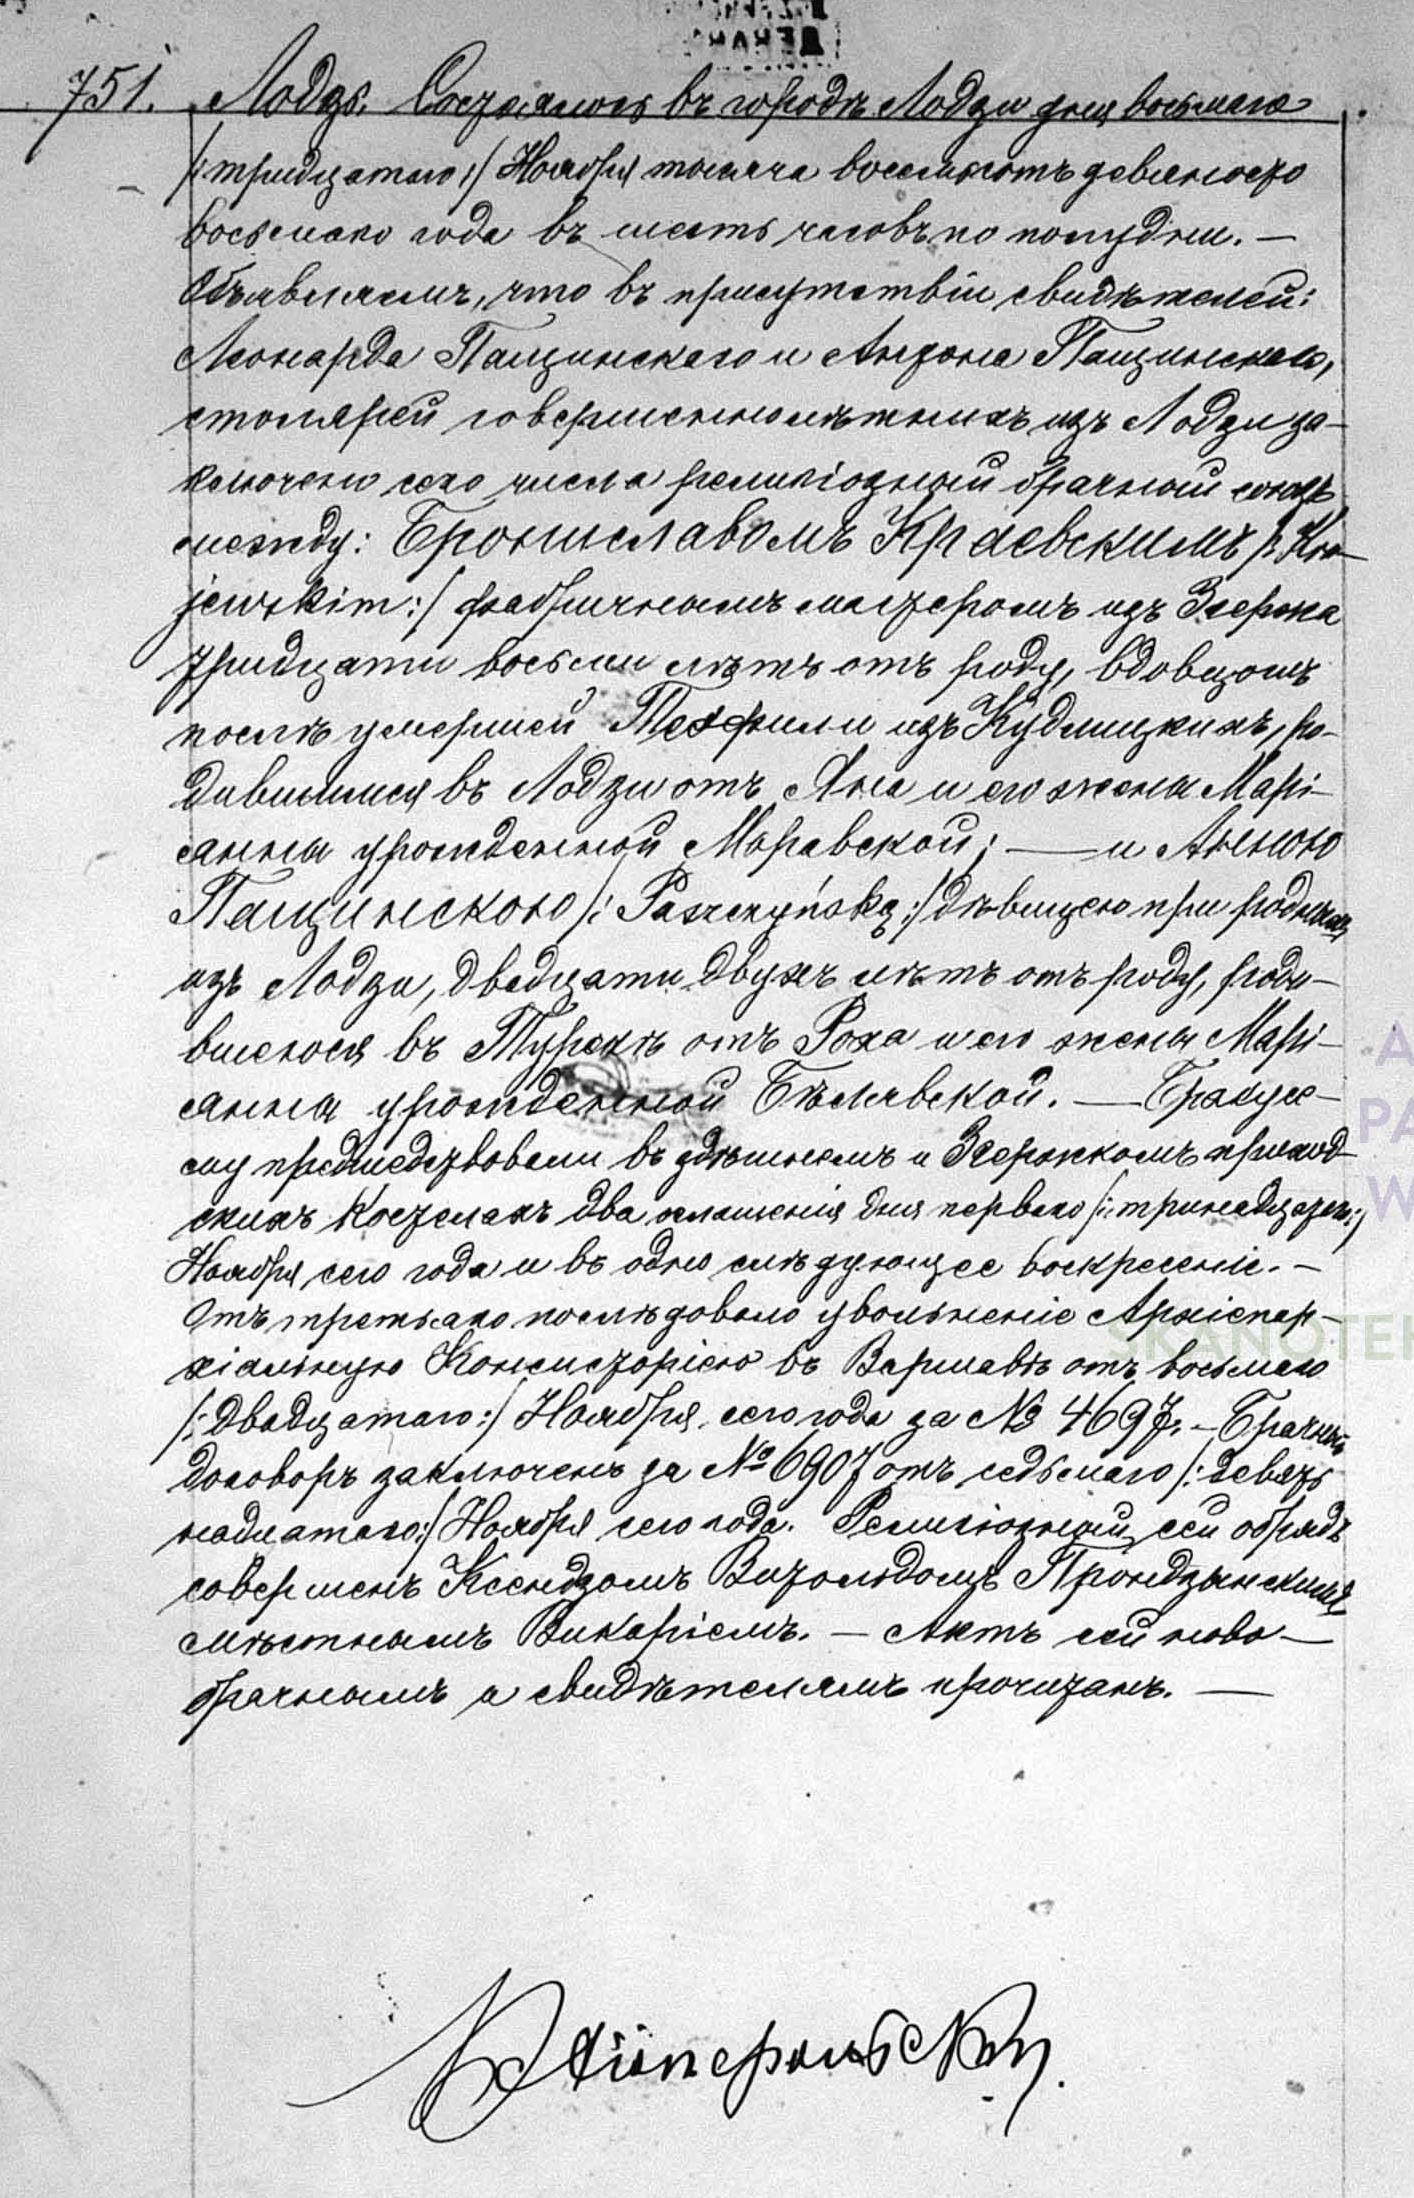 751. Лодзь. Состоялось въ городѣ Лодзи дня восьмаго
/:тридцатаго:/ Ноября тысяча восемьсотъ девяносто
восьмаго года въ шесть часовъ по полудни. —
Объявляемъ, что въ присутствіи свидѣтелей:
Леонарда Пащинскаго и Антона Пащинскаго,
столярей совершеннолѣтнихъ изъ Лодзи за-
ключенъ сего числа религіозный брачный союзъ
между: Брониславомъ Краевскимъ /:Kra-
jewskim:/ фабричнымъ мастеромъ изъ Згержа
тридцати восьми лѣтъ отъ роду, вдовцомъ
послѣ умершей Теофили изъ Кудлицкихъ, ро-
дившимся въ Лодзи отъ Яна и его жены Марі-
анны урожденной Моравской; — и Анною
Пащинскою /:Paszczyńską:/ дѣвицею при родныхъ
изъ Лодзи, двадцати двухъ лѣтъ отъ роду, роди-
вшеюся въ Турекѣ отъ Роха и его жены Марі-
анны урожденной Бѣлявской. — Браку се-
му предшедствовали въ здѣшнемъ и Згержскомъ приход-
скихъ костелахъ два оглашенія дня перваго /:тринадцатаго:/
Ноября сего года и въ одно слѣдующее воскресеніе. —
Отъ третьяго послѣдовало увольненіе Архіепар-
хіальную Консисторіею въ Варшавѣ отъ восьмаго
/:двадцатаго:/ Ноября сего года за № 4697. — Брачный
договоръ заключенъ за № 6907 отъ седьмаго /:девят-
надцатаго:/ Ноября сего года. Религіозный сей обрядъ
совершенъ Ксендзомъ Витольдомъ Прондзынскимъ
мѣстнымъ Викаріемъ. — Актъ сей ново-
брачнымъ и свидѣтелямъ прочитанъ. —
SKANOTE